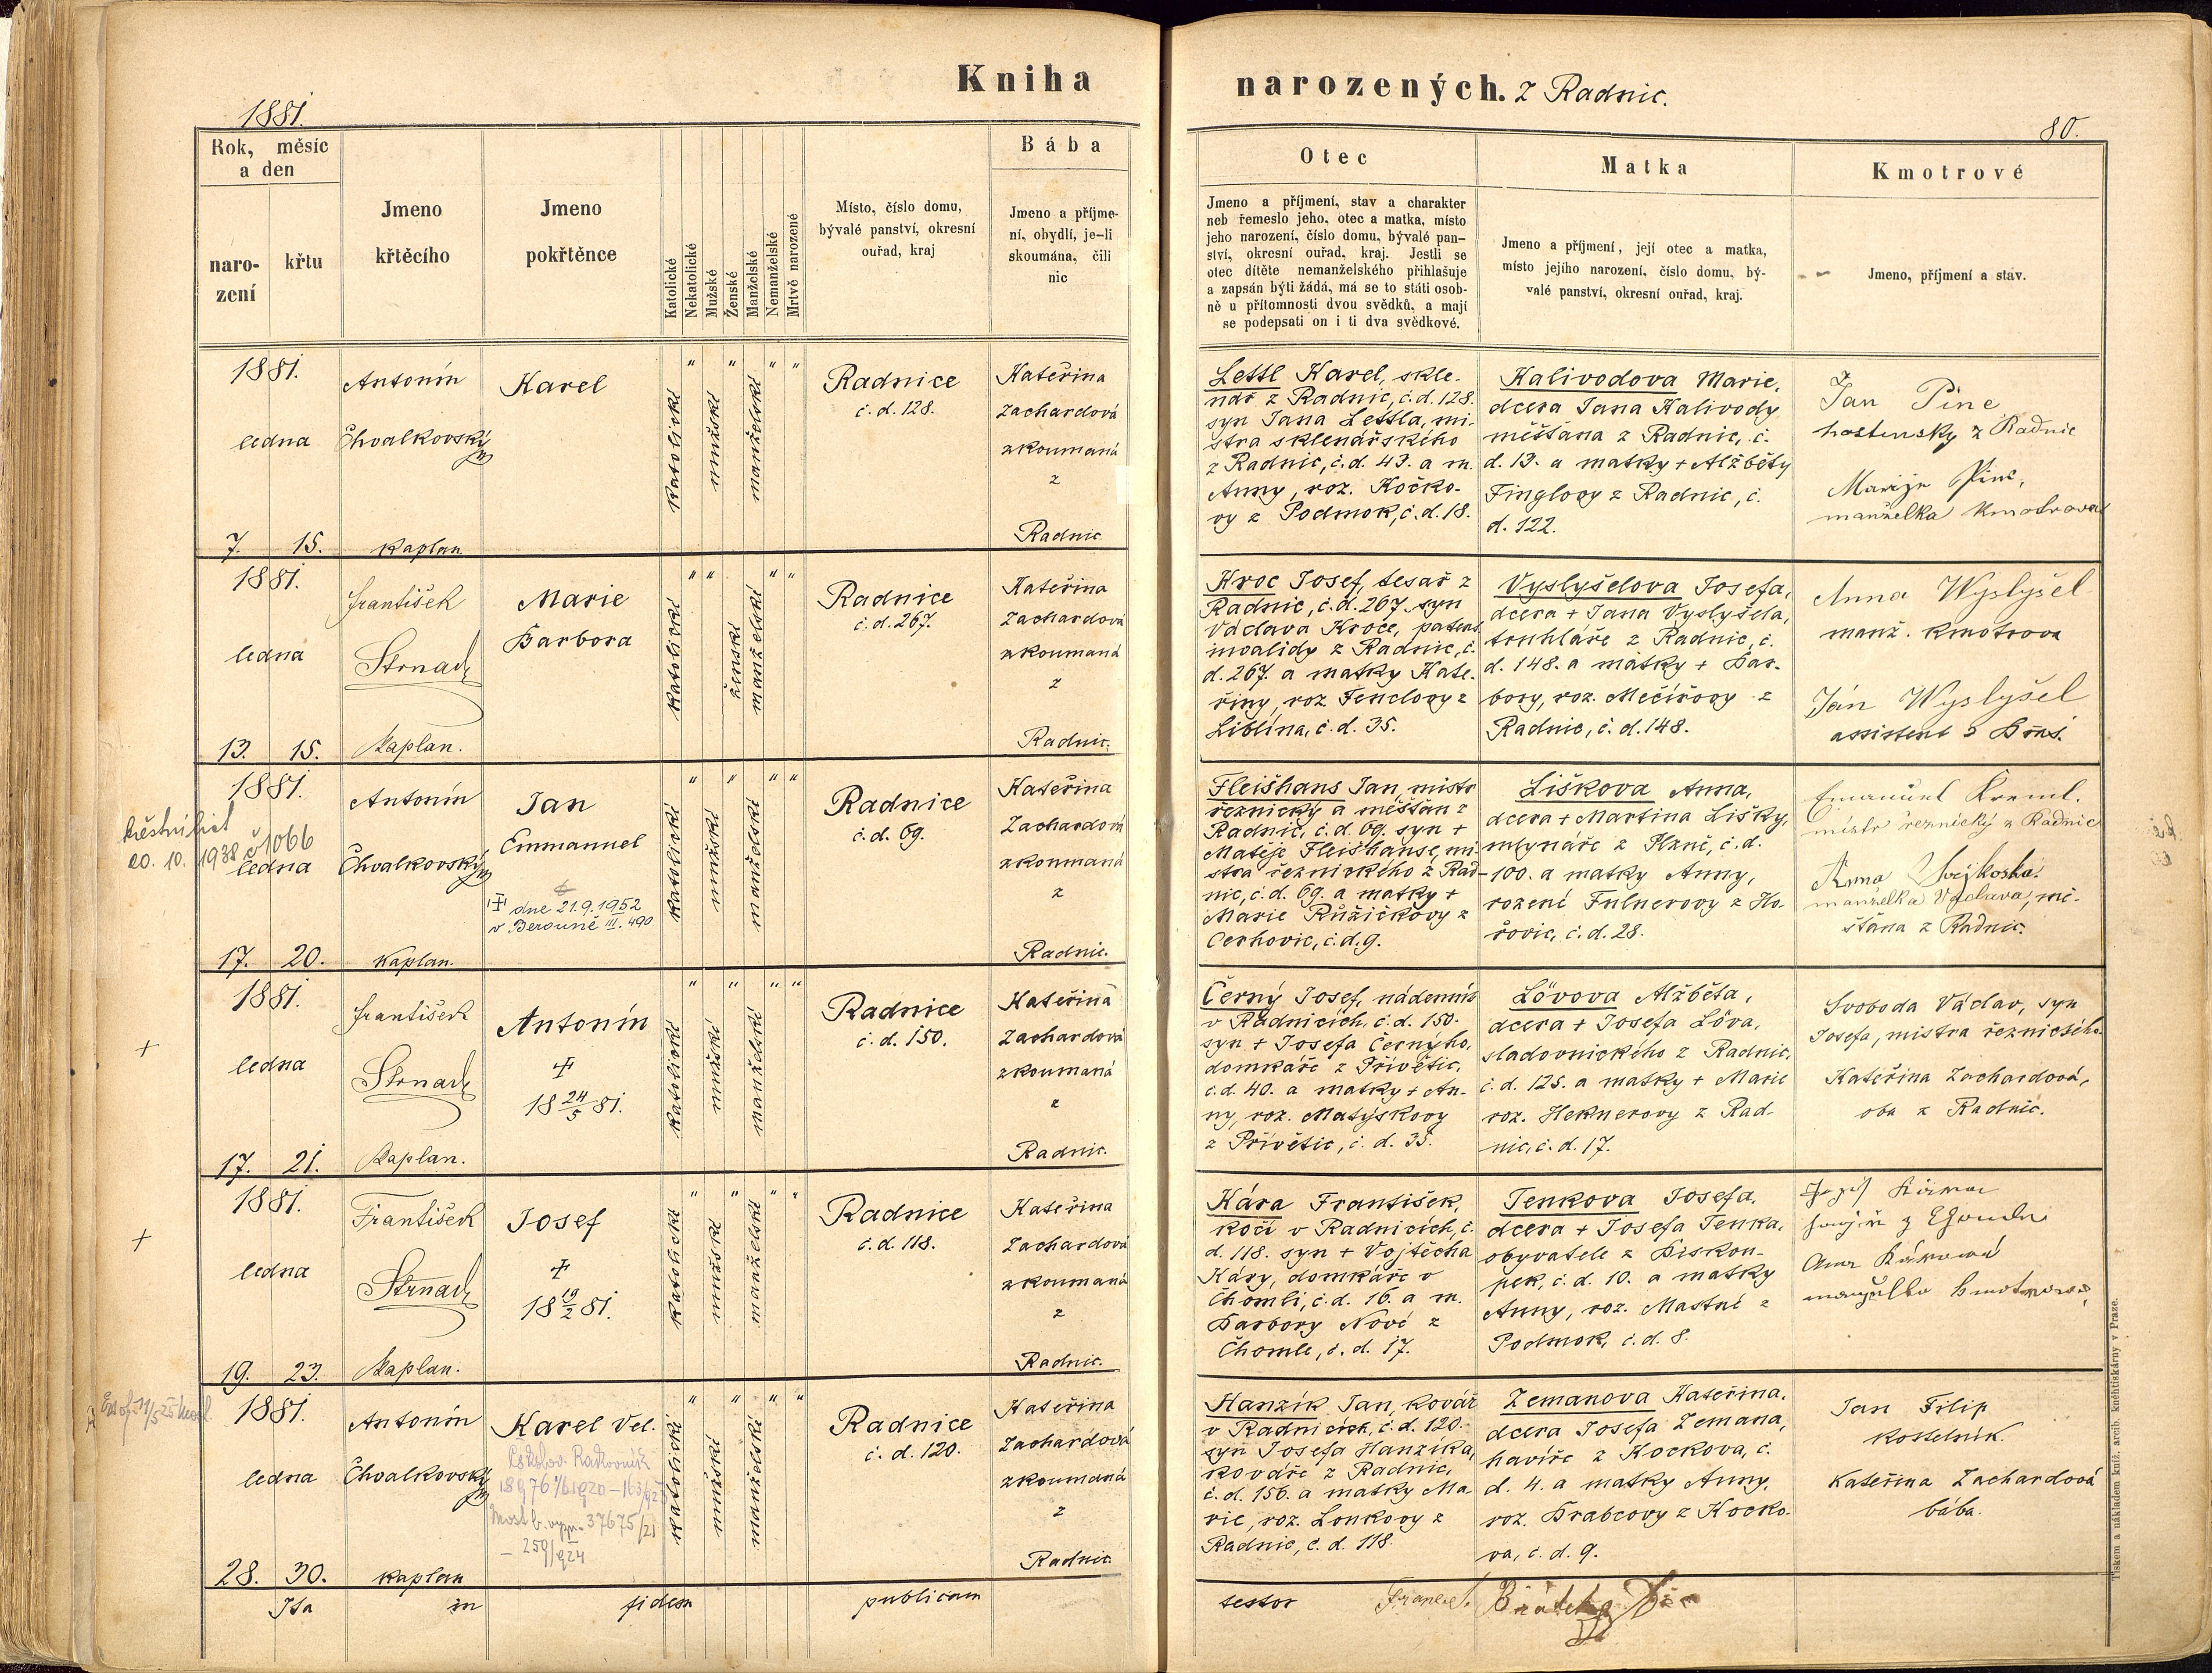 Kniha
narozených. z Radnic.
1881.
80.
Rok, měsíc
a den
naro-
zení
křtu
Jmeno
křtěcího
Jmeno
pokřtěnce
Katolické
Nekatolické
Mužské
Ženské
Manželské
Nemanželské
Mrtvě narozené
Místo, číslo domu,
bývalé panství, okresní
ouřad, kraj
Bába
Jmeno a příjme-
ní, obydlí, je-li
skoumána, čili
nic
Otec
Jmeno a příjmení, stav a charakter
neb řemeslo jeho, otec a matka, místo
jeho narození, číslo domu, bývalé pan-
ství, okresní ouřad, kraj. Jestli se
otec dítěte nemanželského přihlašuje
a zapsán býti žádá, má se to státi osob-
ně u přítomnosti dvou svědků, a mají
se podepsati on i ti dva svědkové.
Matka
Jmeno a příjmení, její otec a matka,
místo jejího narození, číslo domu, bý-
valé panství, okresní ouřad, kraj.
Kmotrové
Jmeno, příjmení a stav.
1881.
ledna
7. 15.
Antonín
Chvalkovský
kaplan
Karel
katolické
mužské
manželské
Radnice
č. d. 128.
Kateřina
Zachardová
zkoumaná
z
Radnic
Lettl Karel, skle-
nář z Radnic, č. d. 128.
syn Jana Lettla, mi-
stra sklenářského
z Radnic, č. d. 43. a m.
Anny, roz. Kočko-
vy z Podmok, č. d. 18.
Kalivodova Marie,
dcera Jana Kalivody
měšťana z Radnic, č.
d. 13. a matky + Alžběty
Finglovy z Radnic, č.
d. 122.
Jan Pinc
hostinsky z Radnic
Marije Pinc,
manželka kmotrova
1881.
ledna
13. 15.
František
Strnad
kaplan.
Marie
Barbora
katolické
ženské
manželské
Radnice
č. d. 267.
Kateřina
Zachardová
zkoumaná
z
Radnic.
Kroc Josef, tesař z
Radnic, č. d. 267. syn
Václava Kroce, patent.
invalidy z Radnic, č.
d. 267. a matky Kate-
řiny, roz. Fenclovy z
Liblína, č. d. 35.
Vyslyšelova Josefa,
dcera + Jana Vyslyšela,
truhláře z Radnic, č.
d. 148. a matky + Bar-
bory, roz. Mečířovy z
Radnic, č. d. 148.
Anna Wyslyšel
manž. kmotrova
Ján Wyslyšel
assistent
1881.
ledna
17. 20.
křestní list
20. 10. 1938 č 1066
Antonín
Chvalkovský
kaplan.
Jan
Emmanuel
dne 21.9.1952
v Berouně III. 490
katolické
mužské
manželské
Radnice
č. d. 69.
Kateřina
Zachardová
zkoumaná
z
Radnic.
Fleišhans Jan, mistr
řeznický a měšťan z
Radnic, č. d. 69. syn +
Matěje Fleišhanse, mi-
stra řeznického z Rad-
nic, č. d. 69. a matky +
Marie Růžičkovy z
Cerhovic, č. d. 9.
Liškova Anna,
dcera + Martina Lišky,
mlynáře z Plzně, č. d.
100. a matky Anny,
rozené Fulnerovy z Ho-
řovic, č. d. 28.
Emanuel Kreml.
mistr řeznický z Radnic
Anna
manželka Václava, mě-
šťana z Radnic.
1881.
ledna
17. 21.
František
Strnad
kaplan.
Antonín
18 24/5 81.
katolické
mužské
manželské
Radnice
č. d. 150.
Kateřina
Zachardová
zkoumaná
z
Radnic.
Černý Josef, nádenník
v Radnicích, č. d. 150.
syn + Josefa Černýho,
domkáře z Přívětic,
č. d. 40. a matky + An-
ny, roz. Matýskovy
z Přívětic, č. d. 35.
Lövova Alžběta,
dcera + Josefa Löva,
sladovnického z Radnic,
č. d. 125. a matky + Marie
roz. Heknerovy z Rad-
nic, č. d. 17.
Svoboda Václav, syn
Josefa, mistra řeznického.
Kateřina Zachardová,
oba z Radnic.
1881.
ledna
19. 23.
František
Strnad
kaplan.
Josef
18 19/2 81.
katolické
mužské
manželské
Radnice
č. d. 118.
Kateřina
Zachardová
zkoumaná
z
Radnic.
Kára František,
kočí v Radnicích, č.
d. 118. syn + Vojtěcha
Káry, domkáře v
Chomli, č. d. 16. a m.
Barbory Nové z
Chomle, č. d. 17.
Tenkova Josefa,
dcera + Josefa Tenka,
obyvatele z Biskou-
pek, č. d. 10. a matky
Anny, roz. Mastné z
Podmok, č. d. 8.
manželka kmotrova
1881.
ledna
28. 30.
Antonín
Chvalkovský
kaplan
Karel Vel.
katolické
mužské
manželské
Radnice
č. d. 120.
Kateřina
Zachardová
zkoumaná
z
Radnic.
Hanzík Jan, kovář
v Radnicích, č. d. 120.
syn Josefa Hanzíka,
kováře z Radnic,
č. d. 156. a matky Ma-
rie, roz. Loukovy z
Radnic, č. d. 118.
Zemanova Kateřina,
dcera Josefa Zemana,
havíře z Kockova, č.
d. 4. a matky Anny,
roz. Brabcovy z Kocko-
va, č. d. 9.
Jan Filip
kostelník.
Kateřina Zachardová
bába.
Ita in fidem publicam testor
Tiskem a nákladem kníž. arcib. knihtiskárny v Praze.